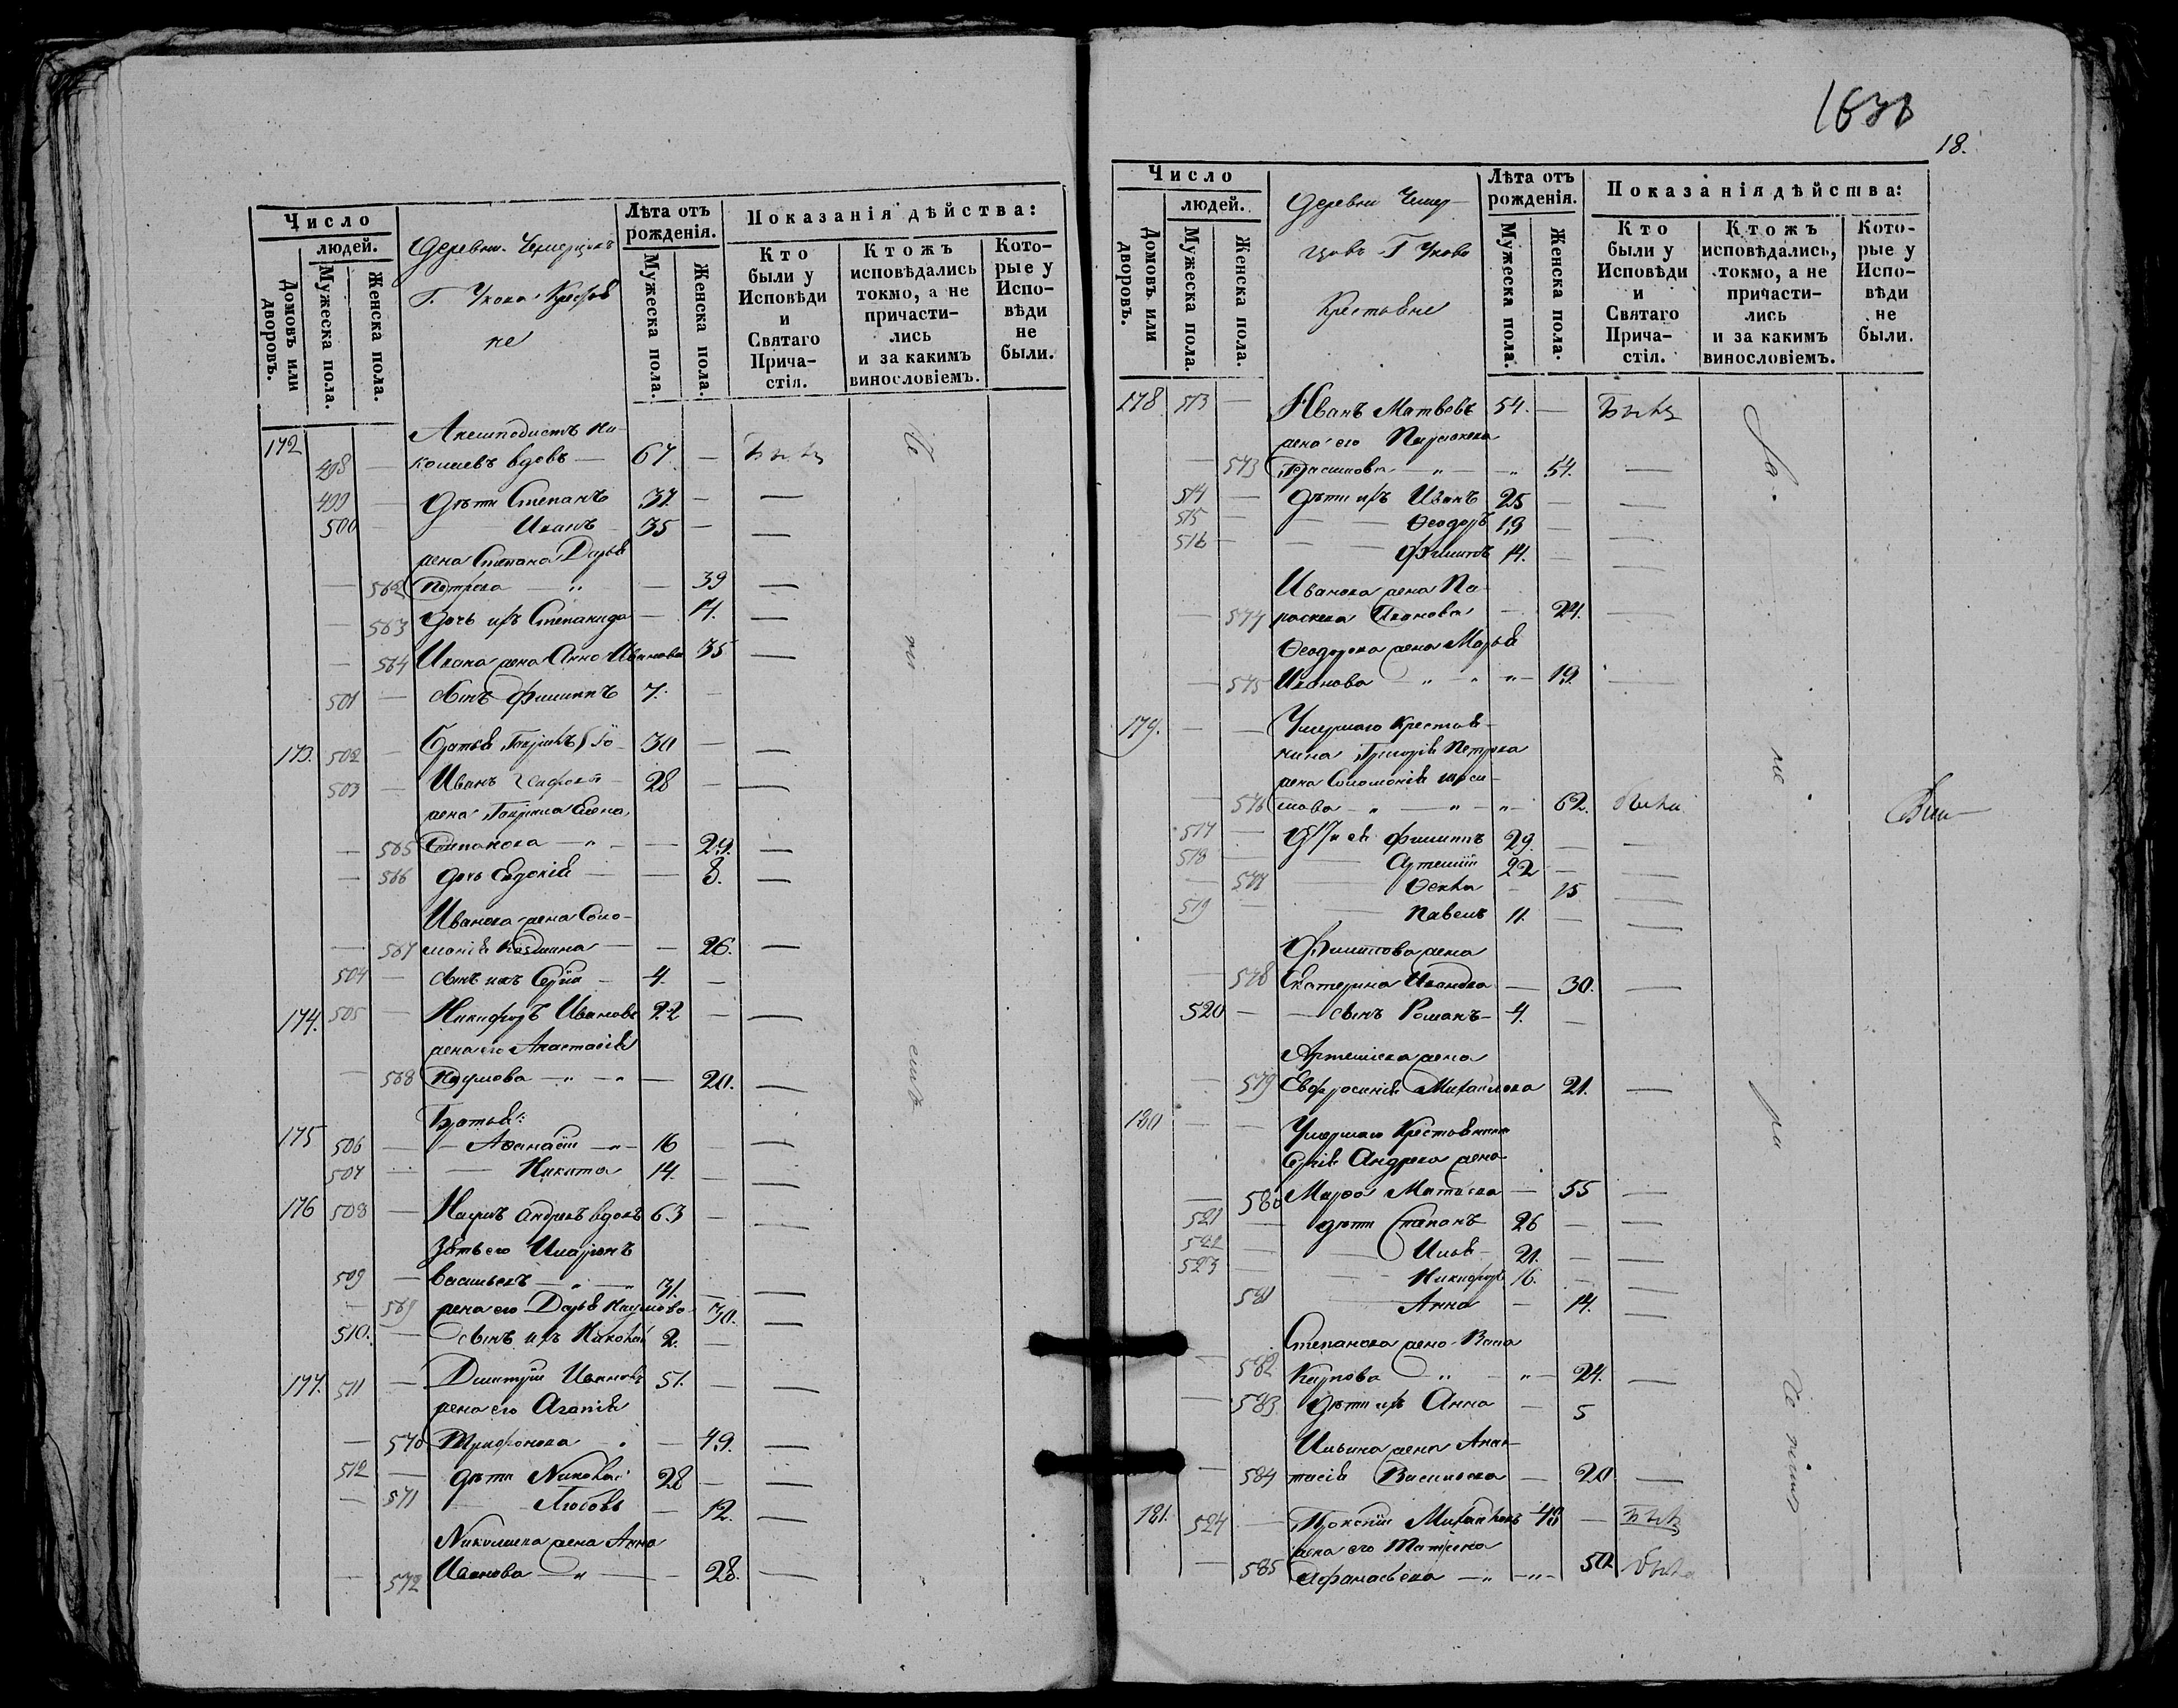 Число
людей.
Домовъ или дворовъ.
Мужеска пола.
Женска пола.
Деревни Чемерцовъ
Г. Укова Крестья
не
Лѣта отъ рожденія.
Мужеска пола.
Женска пола.
Показанія дѣйства:
Кто были у Исповѣди и Святаго Причастія.
Ктожъ исповѣдались токмо, а не причастились и за какимъ винословіемъ.
Которые у Исповѣди не были.
172
498 вдовъ — 67. — Былъ
499 — Дѣти Степанъ 37. — —
500 — Иванъ 35 —
жена Степана Дарья
562 Петрова — „ — 39 —
563 дочь ихъ Степанида — 14. —
564 Ивана жена Анна Иванова 35 —
501 — сынъ Филиппъ 7. —
173. 502 — Братья 30 — —
503 — Иванъ 28 — —
жена Елена
565 Степанова — „ — — 29. —
566 дочь Евдокія — — 8. —
Иванова жена Соло-
567 монія Козмина — — 26. —
504 — сынъ ихъ 4. —
174. 505 — Никифоръ Ивановъ 22 — —
жена его Анастасія
568 Наумова — „ — „ — 20. —
Братья:
175 506 — Аѳанасій — „ — 16 — —
507 — Никита 14. — —
176 508 — вдовъ 63 — —
Зять его Иларіонъ
509 — Васильевъ — „ — „ 31. — —
569 жена его Дарья Наумова 30. —
510. — сынъ ихъ Николай 2. —
177. 511 — Димитрій Ивановъ 51. — —
жена его Агапія
570 Трифонова „ — 49. —
512 — дѣти Николай 28 — —
571 — Любовь — 12. —
Николаева жена Анна
572 Иванова — „ — — 28. —
18.
Число
людей.
Домовъ или дворовъ.
Мужеска пола.
Женска пола.
Деревни Чемер-
цовъ Г Укова
Крестьяне
Лѣта отъ рожденія.
Мужеска пола.
Женска пола.
Показанія дѣйства:
Кто были у Исповѣди и Святаго Причастія.
Ктожъ исповѣдались, токмо, а не причастились и за какимъ винословіемъ.
Которые у Исповѣди не были.
178 513 — Иванъ Матвѣевъ 54. — Былъ
жена его
573 Герасимова — „ — „ 54. —
514 — дѣти ихъ Иванъ 25 — —
515 — — Ѳеодоръ 19 — —
516 — — Филиппъ 14. — —
Иванова жена Па-
574 раскева Иванова — 24. —
Ѳеодорова жена Марья
575 Иванова — „ — „ — 19. —
179. — — Умершаго Крестья-
нина Григорія Петрова
жена Соломонія
576 мова — „ — „ — „ — 62. Была
517 — Филиппъ 29. — —
518 — Артемій 22 — —
577 — Ѳекла — 15 —
519 — Павелъ 11. — —
Филиппова жена
578 Екатерина Иванова — 30. —
520 — — сынъ Романъ — 4. —
Артеміева жена
579 Евфросинія Михайлова 21. —
180 — — Умершаго Крестьянина
Андреева жена
580 Марѳа Матвѣева — 55 —
521 — дѣти Степанъ 26 — —
522 — Илья 21. — —
523 — Никифоръ 16. — —
581 — Анна — 14. —
Степанова жена Васса
582 Карпова „ — „ — 24. —
583. дѣти ихъ Анна — 5
Ильина жена Анас-
584 тасія Васильева — 20 —
181. 524 — Прокопій Михайловъ 48 — Былъ
жена его Матрена
585 Афанасьева — „ — „ — 50. была